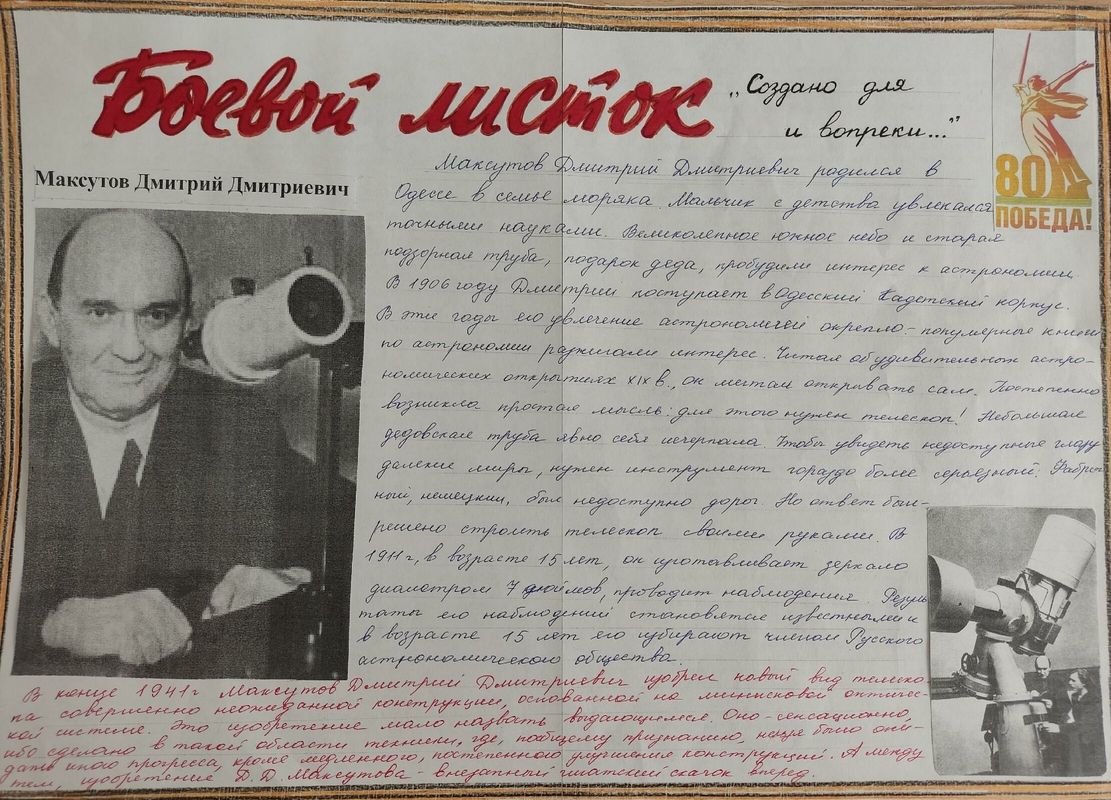 Боевой листок
„Создано для
и вопреки..."
80
ПОБЕДА!
Максутов Дмитрий Дмитриевич
Максутов Дмитрий Дмитриевич родился в
Одессе в семье моряка. Мальчик с детства увлекался
точными науками. Великолепное южное небо и старая
подзорная труба, подарок деда, пробудили интерес к астрономии.
В 1906 году Дмитрий поступает в Одесский Кадетский корпус.
В эти годы его увлечение астрономией окрепло - популярные книги
по астрономии разжигали интерес. Читая об удивительных астро-
номических открытиях XIX в., он мечтал открывать сам. Постепенно
возникла простая мысль: для этого нужен телескоп! Небольшая
дедовская труба явно себя исчерпала. Чтобы увидеть недоступные глазу
далекие миры, нужен инструмент гораздо более серьезный.
ный, немецкий, был недоступно дорог. Но ответ был -
решено строить телескоп своими руками. В
1911 г, в возрасте 15 лет, он изготавливает зеркало
диаметром 7 дюймов, проводит наблюдения. Резуль
таты его наблюдений становятся известными и
в возрасте 15 лет его избирают членом Русского
астрономического общества.
В конце 1941 г Максутов Дмитрий Дмитриевич изобрел новый вид телеско-
па совершенно неожиданной конструкции, основанной на менисковой оптичес-
кой системе. Это изобретение мало назвать выдающимся. Оно - сенсационно,
ибо сделано в такой области техники, где, по общему признанию, нельзя было ожи
дать иного прогресса, кроме медленного, постепенного улучшения конструкций. А между
тем, изобретение Д. Д. Максутова - внезапный гигантский скачок вперед.